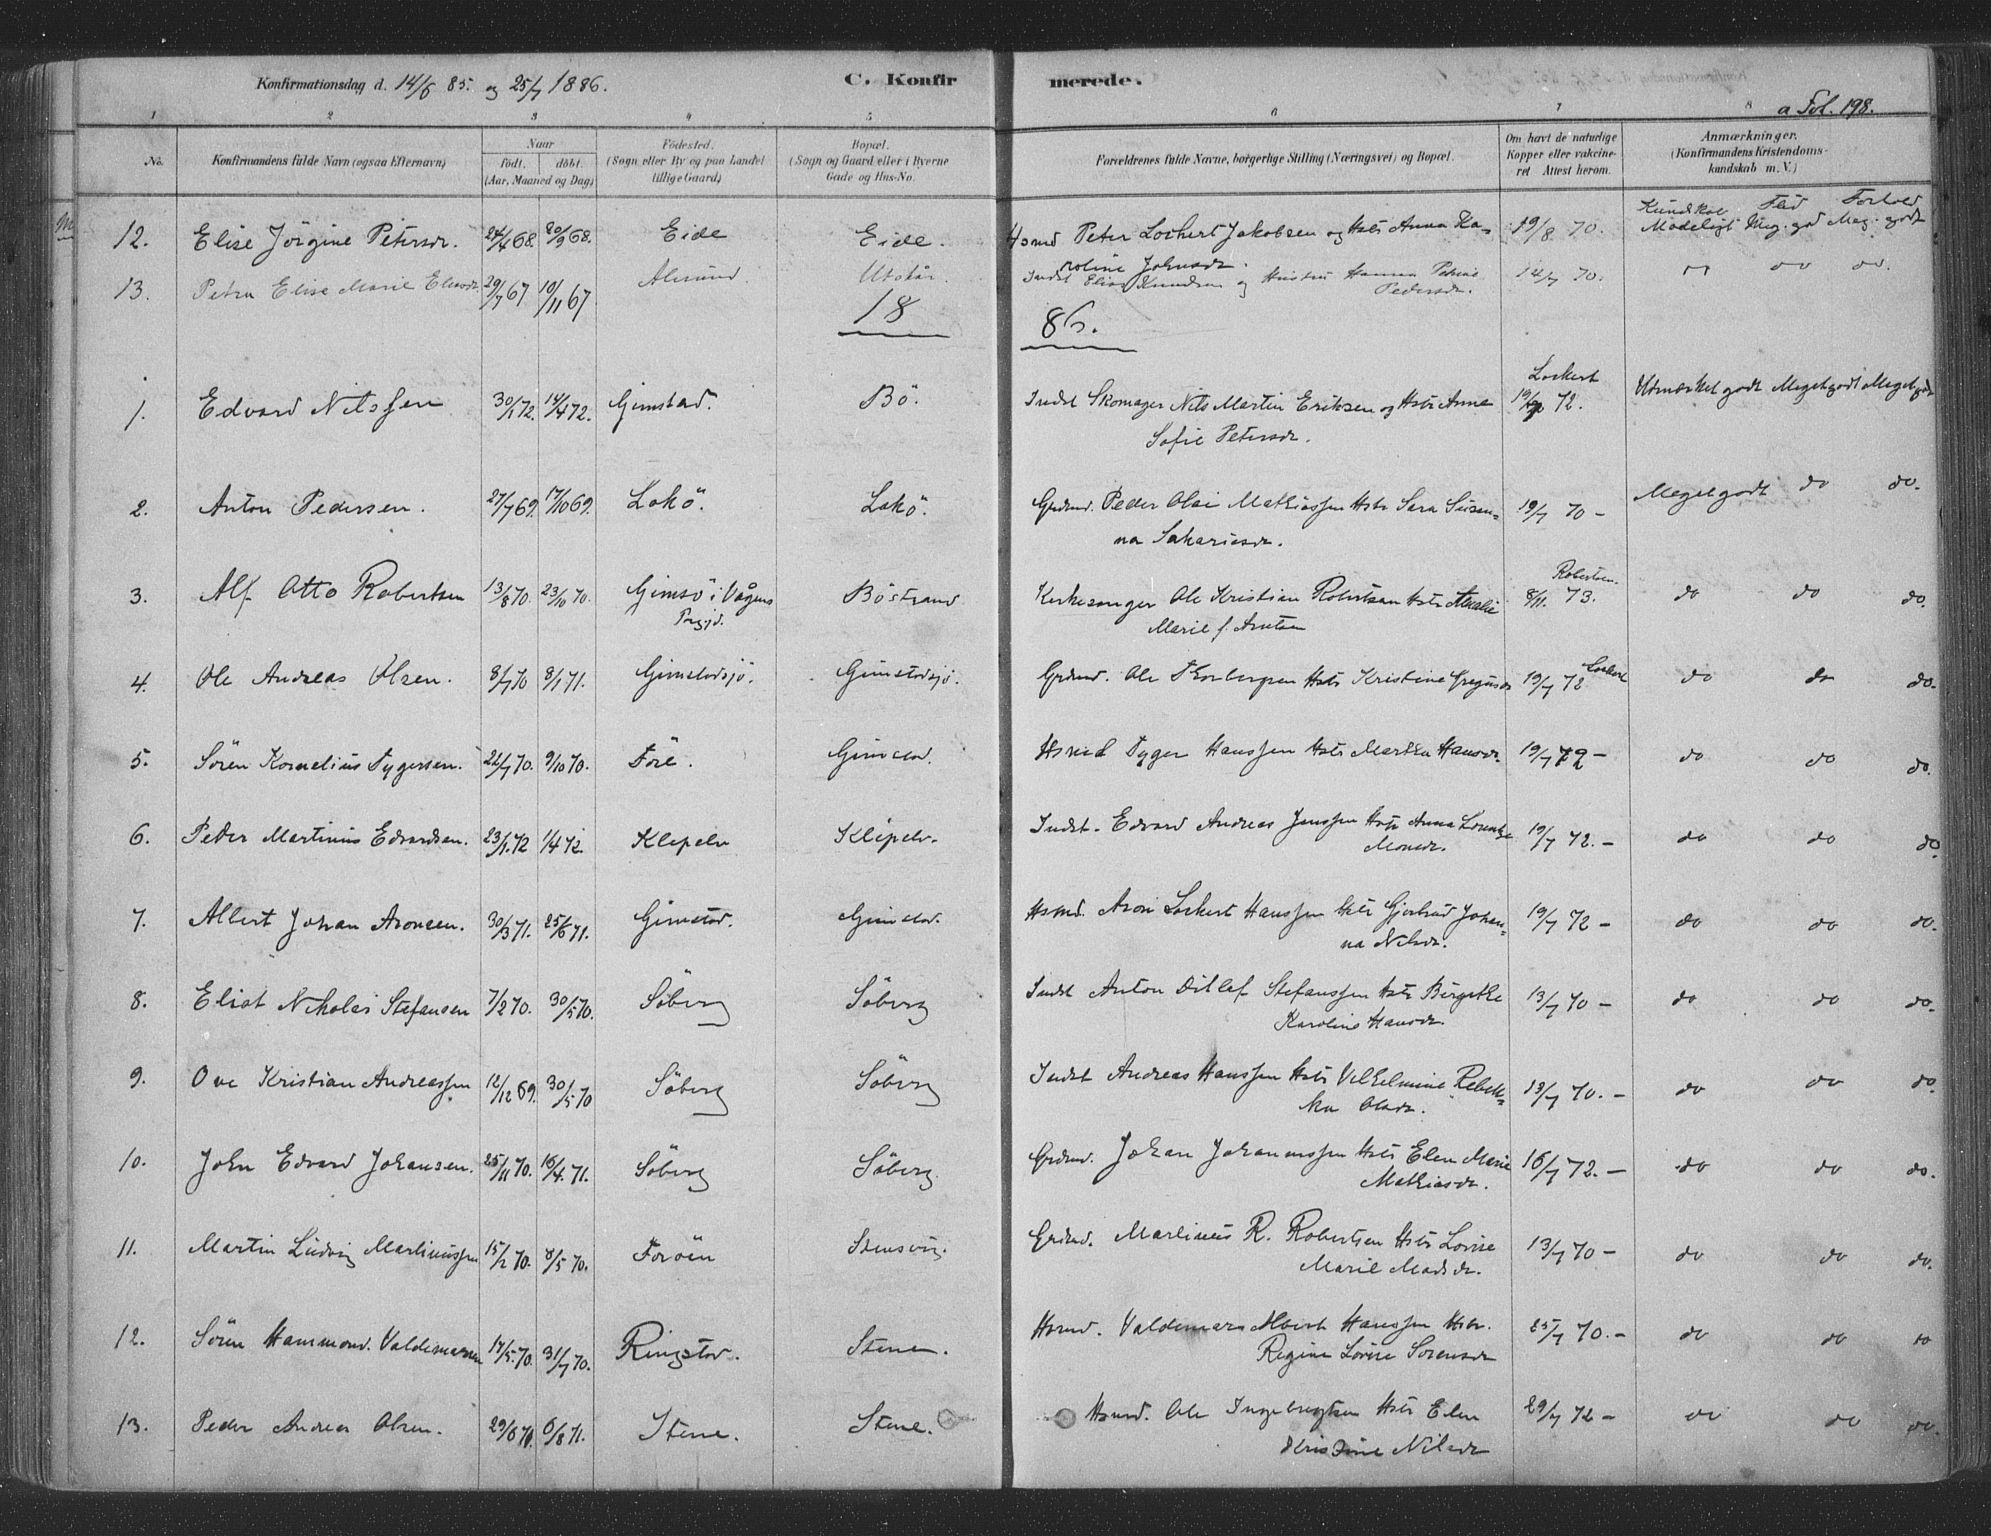 Konfirmationsdag d. 14/6 85. og 25/7 1886. C. Konfir merede. a Fol. 198.
1 2 3 4 5 6 7 8
No. Konfirmandens fulde Navn (ogsaa Efternavn) Naar født. døbt. (Aar, Maaned og Dag) Fødested. (Sogn eller By og paa Landet tillige Gaard) Bopæl. (Sogn og Gaard eller i Byerne Gade og Hus-No. Forældrenes fulde Navne, borgerlige Stilling (Næringsvei) og Bopæl. Om havt de naturlige Kopper eller vakcineret Attest herom. Anmærkninger. (Konfirmandens Kristendomskundskab m. V.)
Kundskab Flid Forhold
12. Elise Jörgine Petersdr. 24/4 68 20/9 68. Eide Eide. Hsmd Peter Lockert Jakobsen og Hstr Anna Ka- 19/8 70. Madeligt Meg. gd Meg. godt
roline Johnsdr.
13. Petra Elise Marie Eliasdr. 29/7 67 10/11 67 Alsund Utskår Indst Elias Knudsen og Hustru Hanna Petrine 14/7 70. do do do.
Pedersdr.
18 86.
1. Edvard Nilssen 30/1 72. 14/4 72. Gimstad. Bö. Indst Skomager Nils Martin Eriksen og Hstr Anna Lockert 19/7 72. Udmærket godt Meget godt Meget godt
Sofie Petersdr.
2. Anton Pedersen. 27/7 69. 17/10 69. Lakö. Lakö. Grdmd. Peder Olai Mathiassen Hstr Sara Susan= 19/7 70 – Meget godt do do.
na Sakariasdr.
3. Alf Otto Robertsen 13/8 70. 23/10 70. Gimsö i Vågens Böstrand Kirkesanger Ole Kristian Robertsen Hstr Amalie Robertsen. 8/11. 73. do do do.
Prgjd. Marie f. Arntsen
4. Ole Andreas Olsen. 8/7 70 8/1 71. Gimstadsjö. Gimstadsjö. Grdmd. Ole Thorbergsen Hstr Kristine Gregusdr 19/7 72 Lockert do do do.
5. Sören Kornelius Tygersen. 22/7 70. 9/10 70. Före. Gimstad. Hsmd Tyger Hanssen Hstr Martha Hansdr. 19/7 72 – do do do.
6. Peder Martinus Edvardsen. 23/1. 72 1/4 72. Klepelv Klepelv. Indst. Edvard Andreas Jenssen Hstr Anna Lorentze 19/7 72. – do do do.
Monsdr.
7. Albert Johan Aronsen. 30/3 71. 25/6 71. Gimstad. Gimstad. Hsmd. Aron Lockert Hanssen Hstr Gjertrud Johan= 19/7 72 – do do do.
na Nilsdr.
8. Eliot Nikolai Stefansen 7/2 70. 30/5 70. Söberg Söberg Indst Anton Ditlef Stefanssen Hstr Bergithe 13/7 70 – do do do.
Karoline Hansdr.
9. Ove Kristian Andreassen 12/12 69. 30/5 70 Söberg Söberg Indst Andreas Hanssen Hstr Vilhelmine Rebek= 13/7 70. – do do do.
ka Olsdr.
10. John Edvard Johansen. 25/11 70. 16/4. 71. Söberg Söberg. Grdmd. Johan Johannessen Hstr Elen Marie 16/7 72. – do do do.
Mathiasdr.
11. Martin Ludvig Martinussen 15/2 70. 8/5 70. Foröen Stensvåg. Grdmd. Martinus R. Robertsen Hstr Lovise 13/7 70 – do do do.
Marie Madsdr.
12. Sören Hammond. Valdemarsen 14/5. 70. 31/7 70. Ringstad. Stene. Hsmd. Valdemar Albert Hanssen Hstr. 25/7 70. – do do do
Regine Lovise Sörensdr
13. Peder Andreas Olsen. 29/6 71. 6/8 71. Stene. Stene. Hsmd. Ole Ingebrigtsen Hstr Elen 29/7 72 – do do do.
Kristine Nilsdr